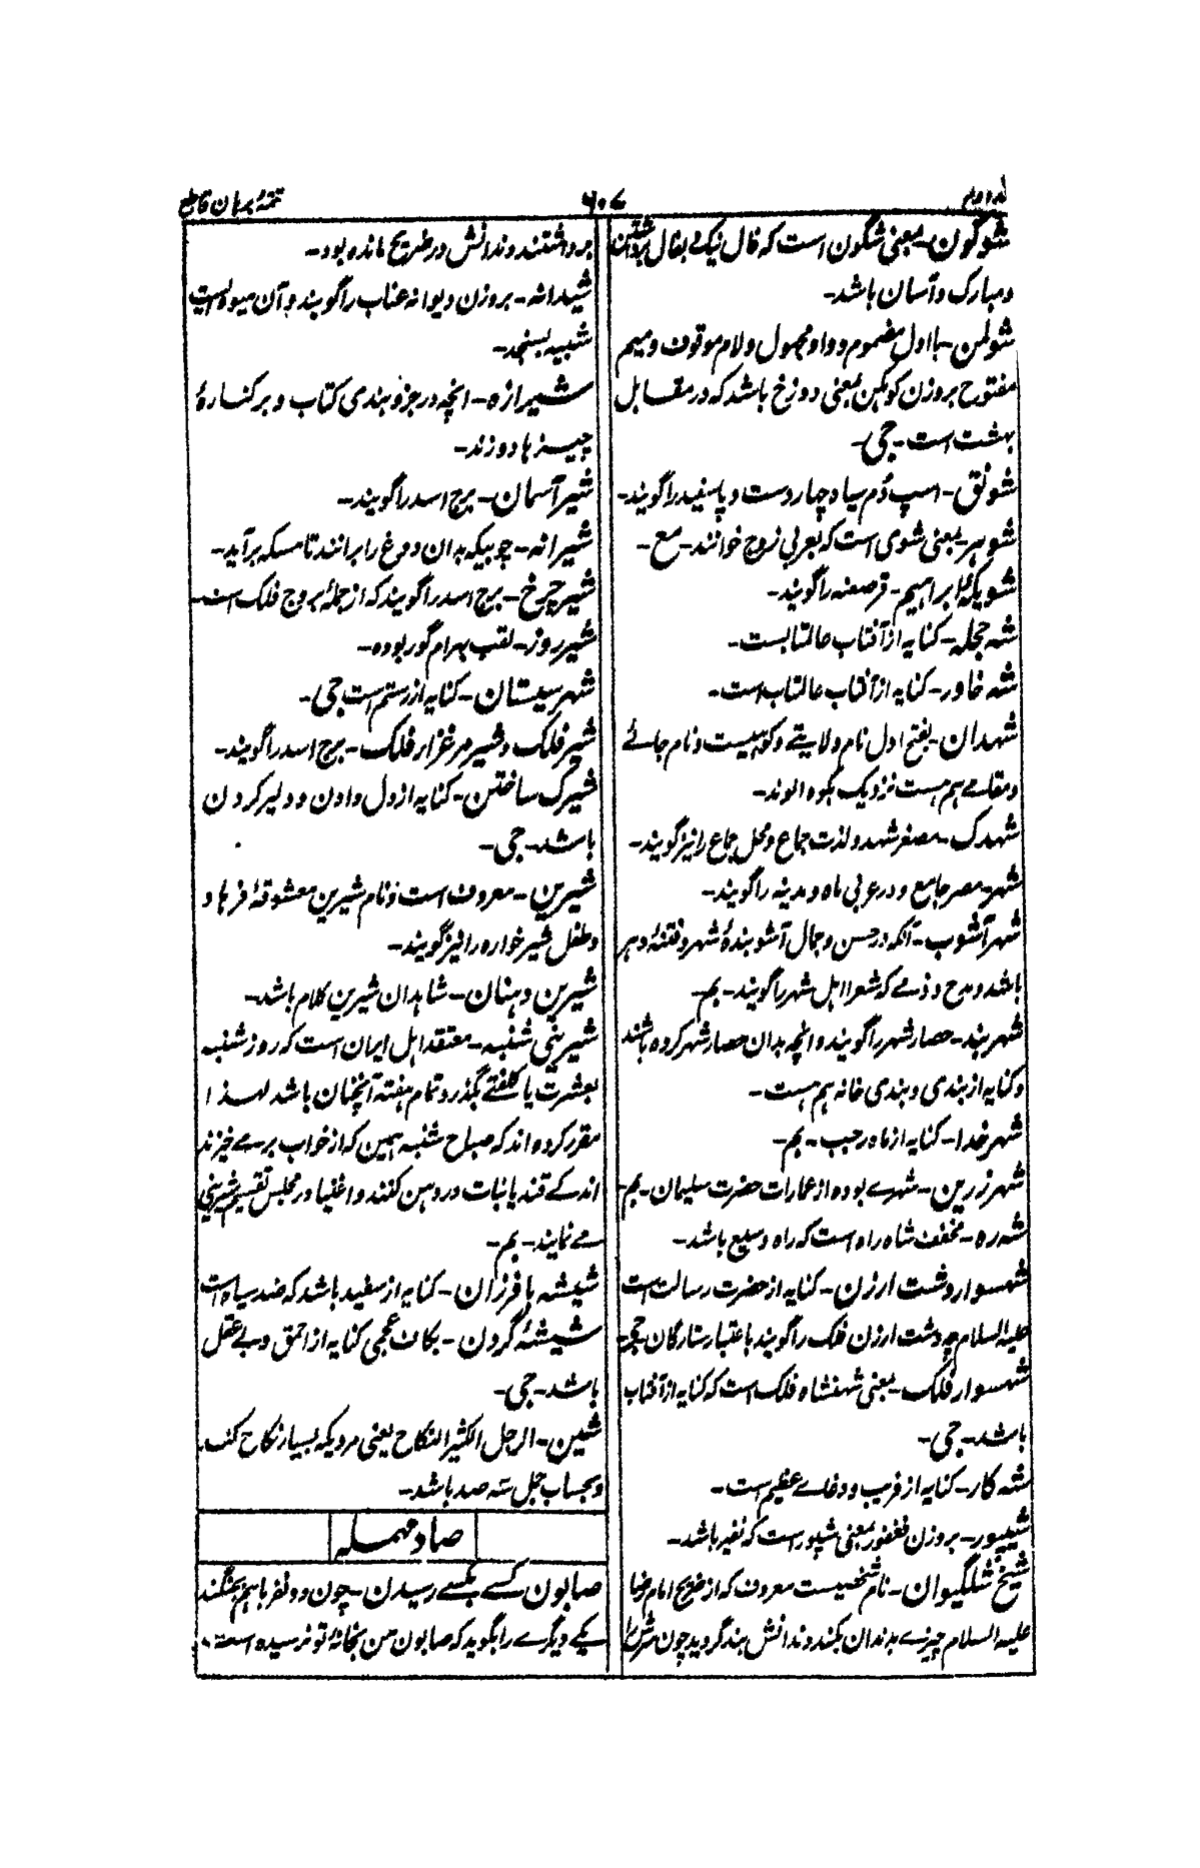 تتمهٔ برهان قاطع
۶۰۷
شوگون - بمعنی شگون است که فال نیک و بفال برداشتن
و مبارک و آسان باشد -
شولمن - با اول مضموم و واو مجهول و لام موقوف و میم
مفتوح بروزن کوهکن بمعنی دوزخ باشد که در مقابل
بهشت است - جی -
شونق - اسپ دُم سیاه چار دست و پا سفید را گویند -
شوهر - بمعنی شوی است که بعربی زوج خوانند - مع -
شویکهٔ ابراهیم - قرصعنه را گویند -
شه حجله - کنایه از آفتاب عالمتابست -
شه خاور - کنایه از آفتاب عالمتاب است -
شهدان - بفتح اول نام ولایتے و کوهیست و نام جائے
و مقامے هم هست نزدیک بکوه الوند -
شهدک - مصغر شهد و لذت جماع و محل جماع را نیز گویند -
شهر - مصر جامع و در عربی ماه و مدینه را گویند -
شهر آشوب - آنکه در حسن و جمال آشوبندهٔ شهر و فتنهٔ دهر
باشد و مدح و ذمے که شعرا اهل شهر را گویند - بم -
شهر بند - حصار شهر را گویند و آنچه بدان حصار شهر کرده باشند
و کنایه از بندی و بندی خانه هم هست -
شهر خدا - کنایه از ماه رجب - بم -
شهر زرین - شهرے بوده از عمارات حضرت سلیمان - بم -
شه ره - مخفف شاه راه است که راه وسیع باشد -
شهسوار دشت ارزن - کنایه از حضرت رسالت است
علیه السلام چه دشت ارزن فلک را گویند باعتبار ستارگان - جی -
شهسوار فلک - بمعنی شهنشاه فلک است که کنایه از آفتاب
باشد - جی -
شه کار - کنایه از فریب و دغاے عظیم است -
شیپور - بروزن فغفور بمعنی شپور است که نفیر باشد -
شیخ شلگیوان - نام شخصیست معروف که از ضریح امام رضا
علیه السلام چیزے بدندان بکند و دندانش بند گردید چون سرش را
برداشتند دندانش در ضریح مانده بود -
شیدانه - بروزن دیوانه عناب را گویند و آن میوه ایست
شبیه بسنجد -
شیرازه - انچه در جزوبندی کتاب و بر کنارهٔ
چیزها دوزند -
شیر آسمان - برج اسد را گویند -
شیرانه - چوبیکه بدان دوغ را برانند تا مسکه برآید -
شیر چرخ - برج اسد را گویند که از جملهٔ بروج فلک است -
شیر روز - لقب بهرام گور بوده -
شهر سیستان - کنایه از رستم است جی -
شیر فلک و شیر مرغزار فلک - برج اسد را گویند -
شیرک ساختن - کنایه از دل دادن و دلیر کردن
باشد - جی -
شیرین - معروف است و نام شیرین معشوقهٔ فرهاد
و طفل شیر خواره را نیز گویند -
شیرین دهنان - شاهدان شیرین کلام باشد -
شیرینی شنبه - معتقد اهل ایران است که روز شنبه
بعشرت یا کلفتے بگذرد تمام هفته آنچنان باشد لهذا
مقرر کرده اند که صباح شنبه همین که از خواب برمے خیزند
اندکے قند یا نبات در دهن کنند و اغنیا در مجلس تقسیم شیرینی
مے نمایند - بم -
شیشه بافرزان - کنایه از سفید باشد که ضد سیاه است
شیشهٔ گردن - بکاف عجمی کنایه از احمق و بے عقل
باشد - جی -
شین - الرجل الکثیر النکاح یعنی مردیکه بسیار نکاح کند
و بحساب جمل سه صد باشد -
صاد مهمله
صابون کسے بکسے رسیدن - چون دو نفر باهم بجنگند
یکے دیگرے را بگوید که صابون من بجامهٔ تو نرسیده است